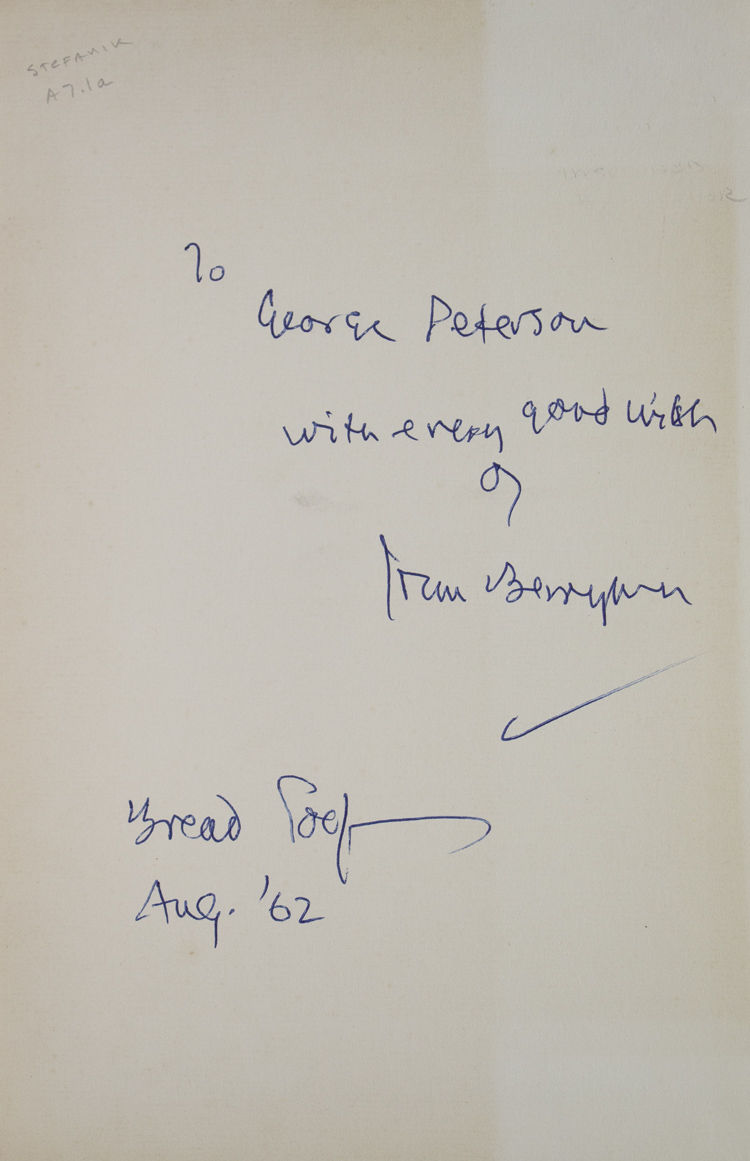 STEFANIK
A7.1a
To
George Peterson
with every good wish
of
John Berryman
Bread Loaf
Aug. '62